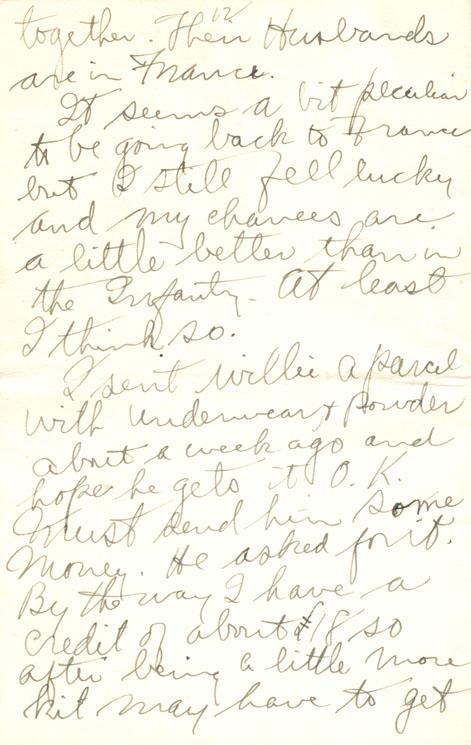 12
together. Their Husbands
are in France.
It seems a bit peculiar
to be going back to France
but I still feel lucky
and my chances are
a little better than in
the Infanty. At least
I think so.
I sent Willie a parcel
with underwear & powder
about a week ago and
hope he gets it O.K.
Must send him some
Money. He asked for it.
By the way I have a
credit of about £18 so
after being a little more
kit may have to get